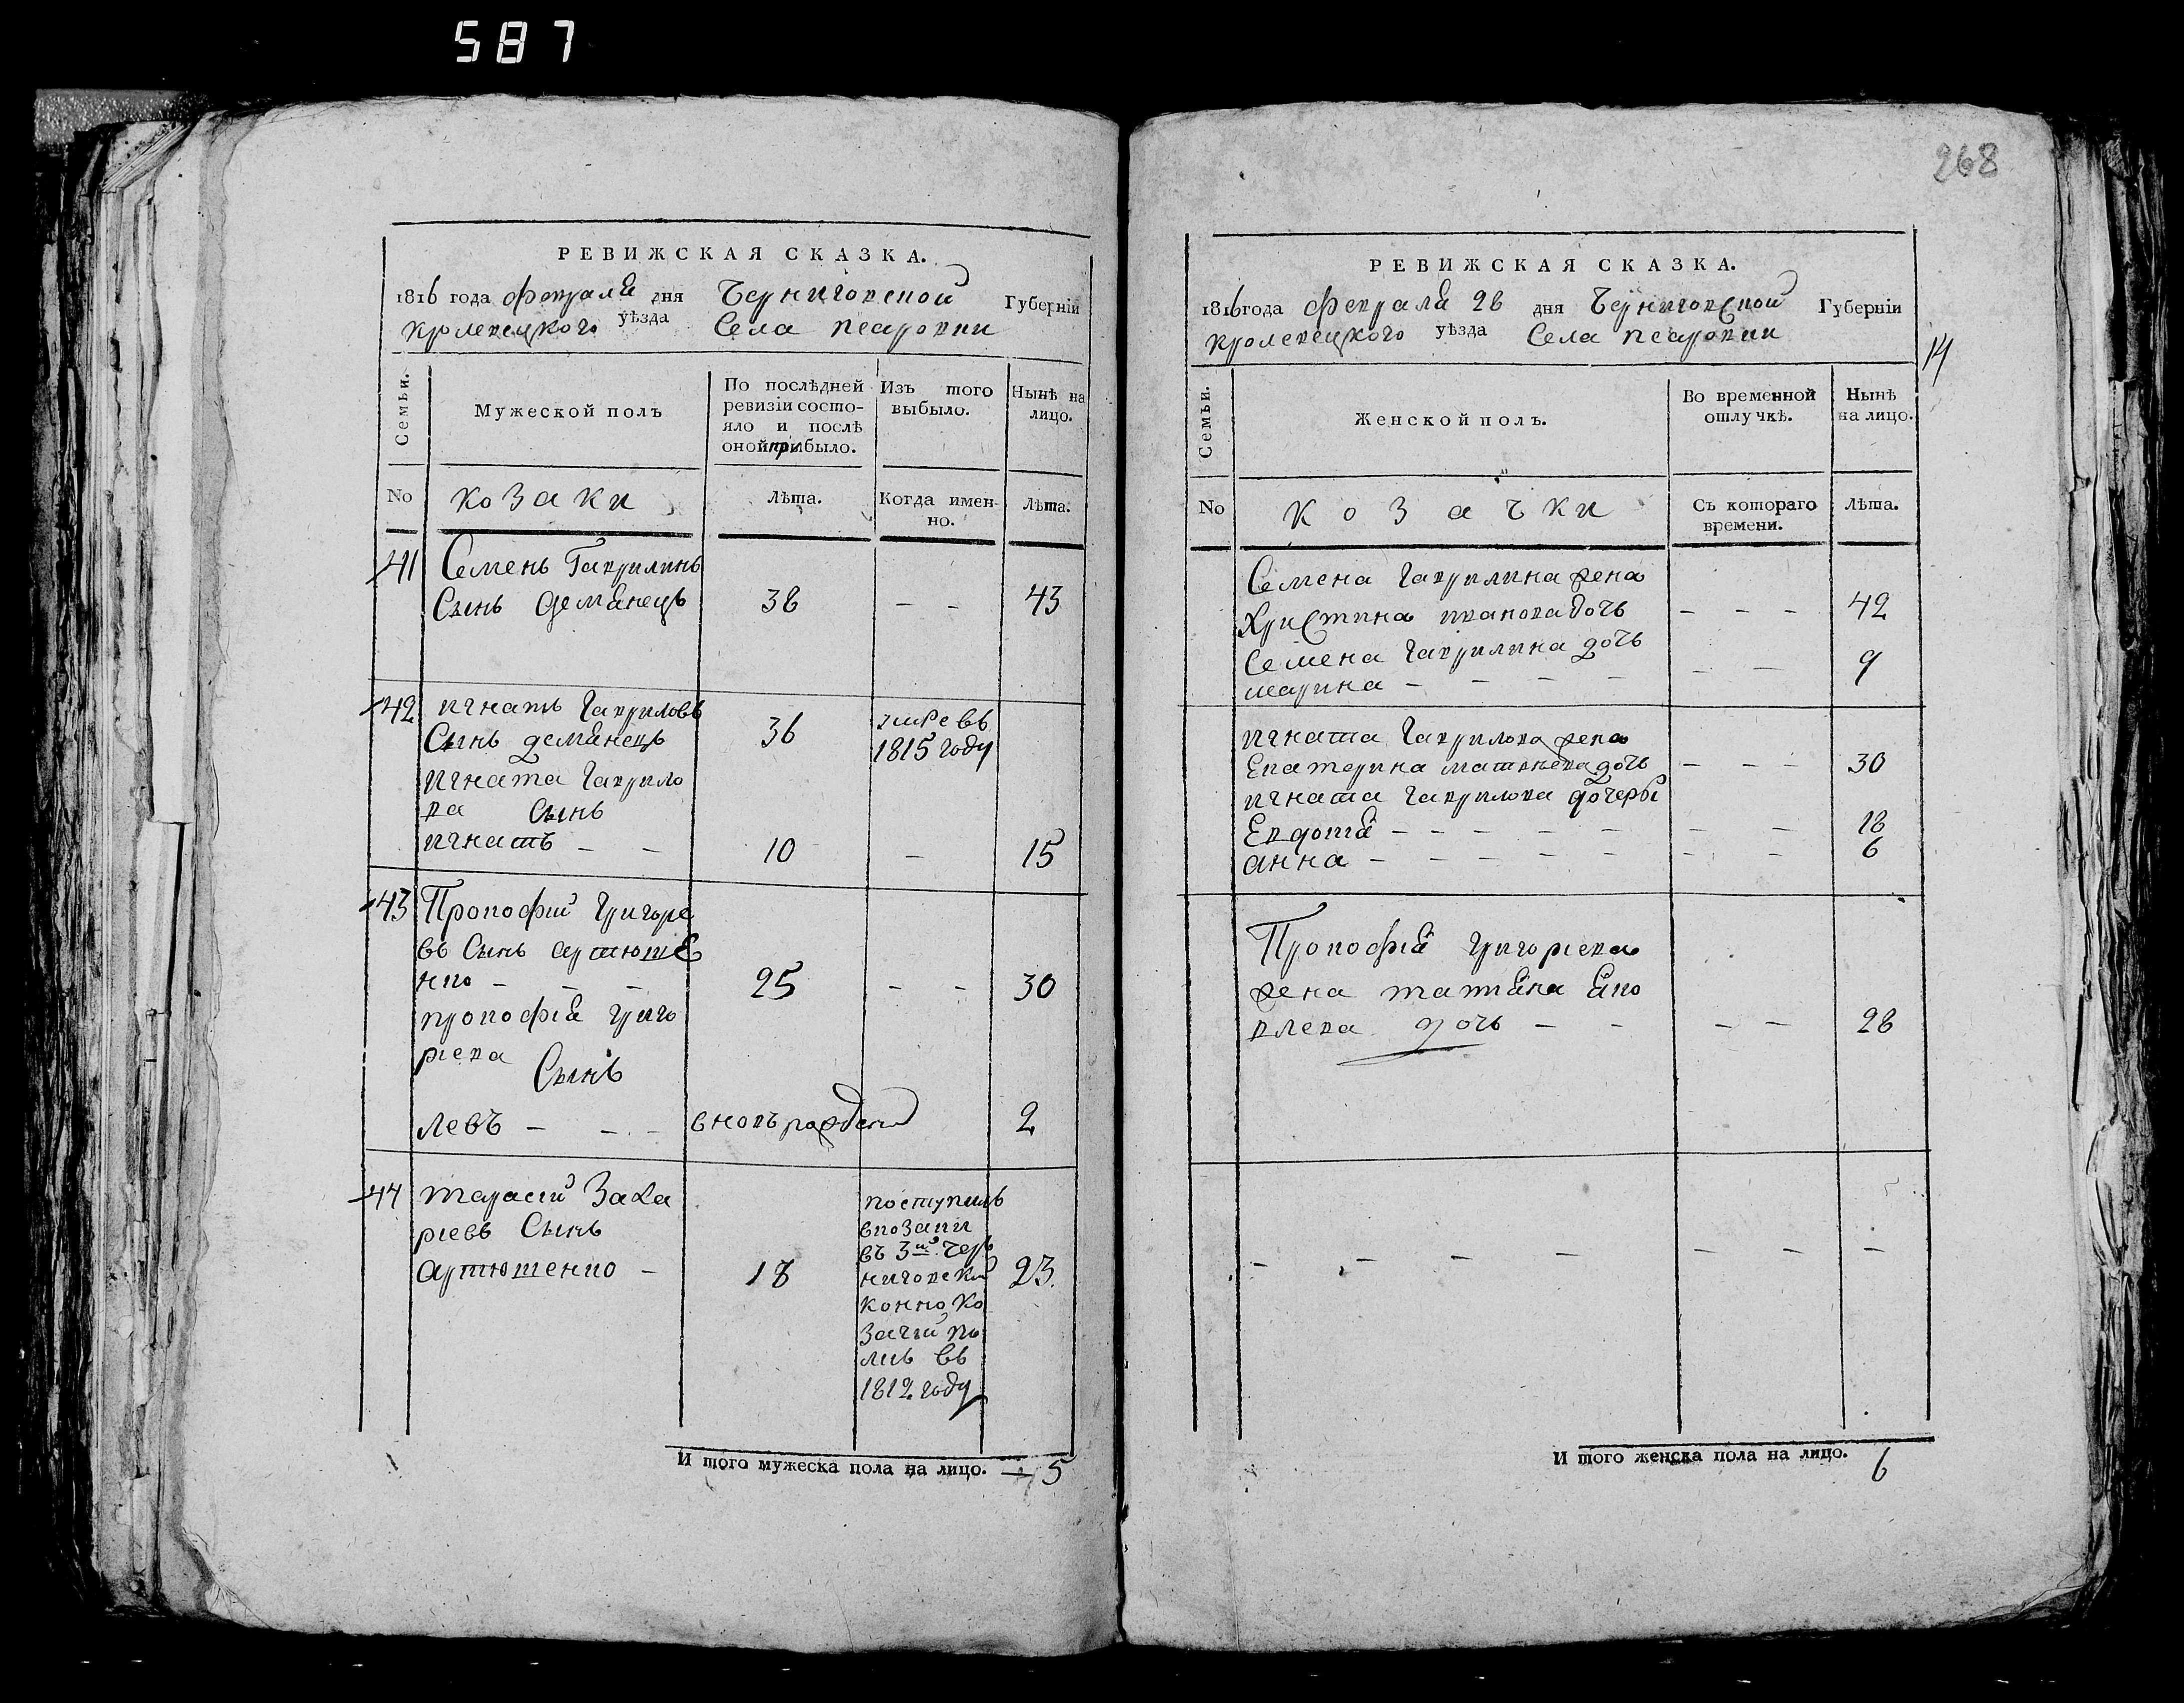 587
268
РЕВИЖСКАЯ СКАЗКА.
1816 года февраля дня Черниговской Губерніи
кролевецкого уѣзда Села
Семьи.
Мужеской полъ
По послѣдней ревизіи состо-
яло и послѣ
оной прибыло.
Изъ того
выбыло.
Нынѣ на
лицо.
No
козаки
Лѣта.
Когда имен-
но.
Лѣта.
41 Семенъ Гаврилинъ
Сынъ деманецъ 38 – – 43
42 игнатъ Гавриловъ
Сынъ деманецъ 36 умре въ
1815 году
игната Гаврило
ва Сынъ
игнатъ – – 10 – 15
43 Прокофій Григоре
въ Сынъ артюше
нко – – – 25 – – 30
прокофія Григо
риева
Сынъ
левъ – – – вновь рожденъ 2
44 тарасій Заха
риевъ Сынъ
артюшенко – 18 23
поступилъ
вкозаки
въ 3й Чер
ниговскій
конно ко
зачій по
лкъ въ
1812 году
И того мужеска пола на лицо. 5
РЕВИЖСКАЯ СКАЗКА.
1816 года февраля 28 дня Черниговской Губерніи
кролевецкого уѣзда Села
14
Семьи.
Женской полъ.
Во временной
отлучкѣ.
Нынѣ
на лицо.
No
козачки
Съ котораго
времени.
Лѣта.
Семена Гаврилина жена
Христина иванова дочь – – – 42
Семена Гаврилина дочь
марина – – – – – – 9
игната Гаврилова жена
Екатерина матвѣева дочь – – – 30
игната Гаврилова дочеры
Евдотія – – – – – – – 18
анна – – – – – – – – 6
Прокофія григориева
жена татіяна яко
влева дочь – – – – 28
– – – – – – –
И того женска пола на лицо. 6